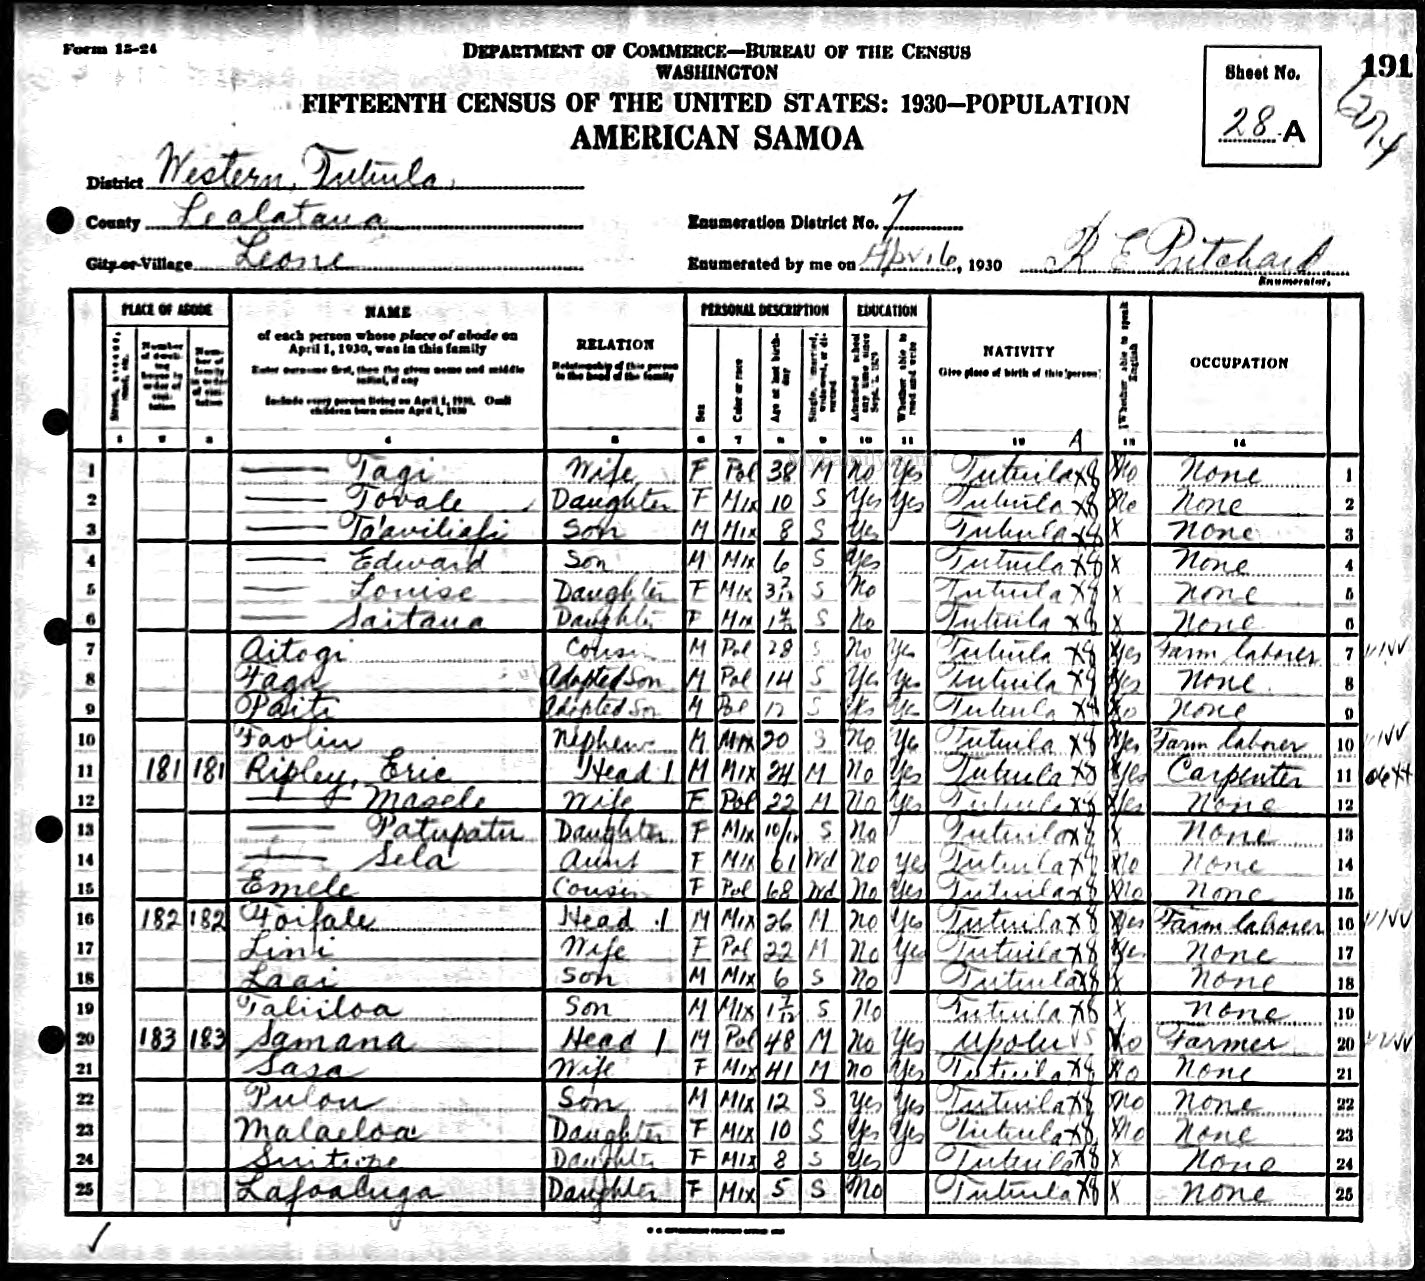 Form 15-24
DEPARTMENT OF COMMERCE—BUREAU OF THE CENSUS
WASHINGTON
FIFTEENTH CENSUS OF THE UNITED STATES: 1930—POPULATION
AMERICAN SAMOA
Sheet No.
28 A
191
District Western, Tutuila
County Lealataua
City or Village Leone
Enumeration District No. 7
Enumerated by me on Apr. 16, 1930 R E Pritchard
Enumerator.
PLACE OF ABODE
Street, avenue, road, etc.
Number of dwelling house in order of visitation
Number of family in order of visitation
NAME
of each person whose place of abode on April 1, 1930, was in this family
Enter surname first, then the given name and middle initial, if any
Include every person living on April 1, 1930. Omit children born since April 1, 1930
RELATION
Relationship of this person to the head of the family
PERSONAL DESCRIPTION
Sex
Color or race
Age at last birthday
Single, married, widowed, or divorced
EDUCATION
Attended school any time since Sept. 1, 1929
Whether able to read and write
NATIVITY
Give place of birth of this person
Whether able to speak English
OCCUPATION
1 2 3 4 5 6 7 8 9 10 11 12 A 13 14
1 —— Tagi Wife F Pol 38 M No Yes Tutuila X8 No None 1
2 —— Tovale Daughter F Mix 10 S Yes Yes Tutuila X8 No None 2
3 —— Ta'aviliafi Son M Mix 8 S Yes Tutuila X8 X None 3
4 —— Edward Son M Mix 6 S Yes Tutuila X8 X None 4
5 —— Louise Daughter F Mix S No Tutuila X8 X None 5
6 —— Saitaua Daughter F Mix S No Tutuila X8 X None 6
7 Aitogi Cousin M Pol 28 S No Yes Tutuila X8 Yes Farm laborer 7
8 Adopted Son M Pol 14 S Yes Yes Tutuila X8 Yes None 8
9 Paiti Adopted Son M Pol 12 S Yes Yes Tutuila X8 No None 9
10 Nephew M Mix 20 S No Yes Tutuila X8 Yes Farm laborer 10
11 181 181 Ripley, Eric Head 1 M Mix 24 M No Yes Tutuila X8 Yes Carpenter 11
12 —— Masele Wife F Pol 22 M No Yes Tutuila X8 Yes None 12
13 —— Patupatu Daughter F Mix 10/12 S No Tutuila X8 X None 13
14 —— Sela Aunt F Mix 61 Wd No Yes Tutuila X8 No None 14
15 Emele Cousin F Pol 68 Wd No Yes Tutuila X8 No None 15
16 182 182 Foifale Head 1 M Mix 26 M No Yes Tutuila X8 Yes Farm laborer 16
17 Lini Wife F Pol 22 M No Yes Tutuila X8 Yes None 17
18 Laai Son M Mix 6 S No Tutuila X8 X None 18
19 Taliiloa Son M Mix S No Tutuila X8 X None 19
20 183 183 Samana Head 1 M Pol 48 M No Yes Upolu VS No Farmer 20
21 Sasa Wife F Mix 41 M No Yes Tutuila X8 No None 21
22 Pulou Son M Mix 12 S Yes Yes Tutuila X8 No None 22
23 Malaeloa Daughter F Mix 10 S Yes Yes Tutuila X8 No None 23
24 Daughter F Mix 8 S Yes Tutuila X8 X None 24
25 Lafoaluga Daughter F Mix 5 S No Tutuila X8 X None 25